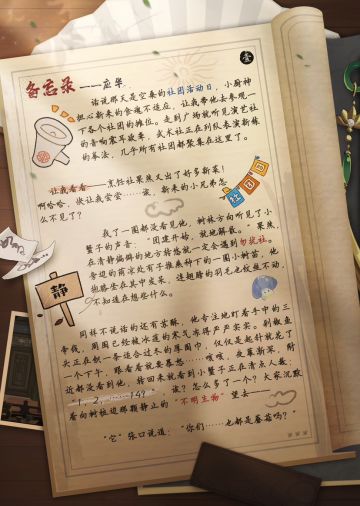 备忘录——应华
壹
话说那天是空桑的社团活动日，小厨神
担心新来的食魂不适应，让我带他去参观一
下各个社团的摊位。走到广场就听见演艺社
的音响震耳欲聋，武术社正在列队表演新练
的拳法，几乎所有社团都聚集在这里了。
让我看看——烹饪社果然又出了好多新菜！
啊哈哈，快让我尝尝……诶，新来的小兄弟怎
么不见了？
社团日
我了一圈都没看见他，树林方向听见了小
蟹子的声音，“团建开始，就地解散。”果然，
在清静幽僻的地方转悠就一定会遇到勿扰社。
旁边的荫凉处有子推燕种下的一团小树苗，他
抱膝坐在其中发呆，连翅膀的羽毛也纹丝不动，
不知道在想些什么。
静
同样不说话的还有冻酥，他专注地盯着手中的三
争钱，周围已经被冰莲的寒气冻得严严实实。剁椒鱼
头正在织一条适合过冬的厚围巾，仅仅是起针就花了
一个下午，眼看着就要暮愁……咳咳，鱼寡新深，附
近都没看到他。转回来就看到小蟹子正在清点人数：
“1，2，……14？”，诶？怎么多了一个？大家沉默
看向树桩边那颗静止的“不明生物”望去——
“它”张口说道：“你们……也都是蘑菇吗？”